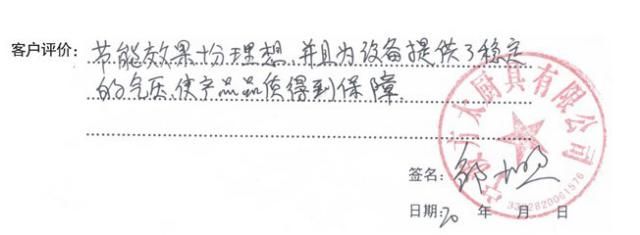 客户评价:节能效果十分理想,并且为设备提供了稳定
的气压,使产品品质得到保障.
太厨具有限公司
签名:
日期:20 年 月 日